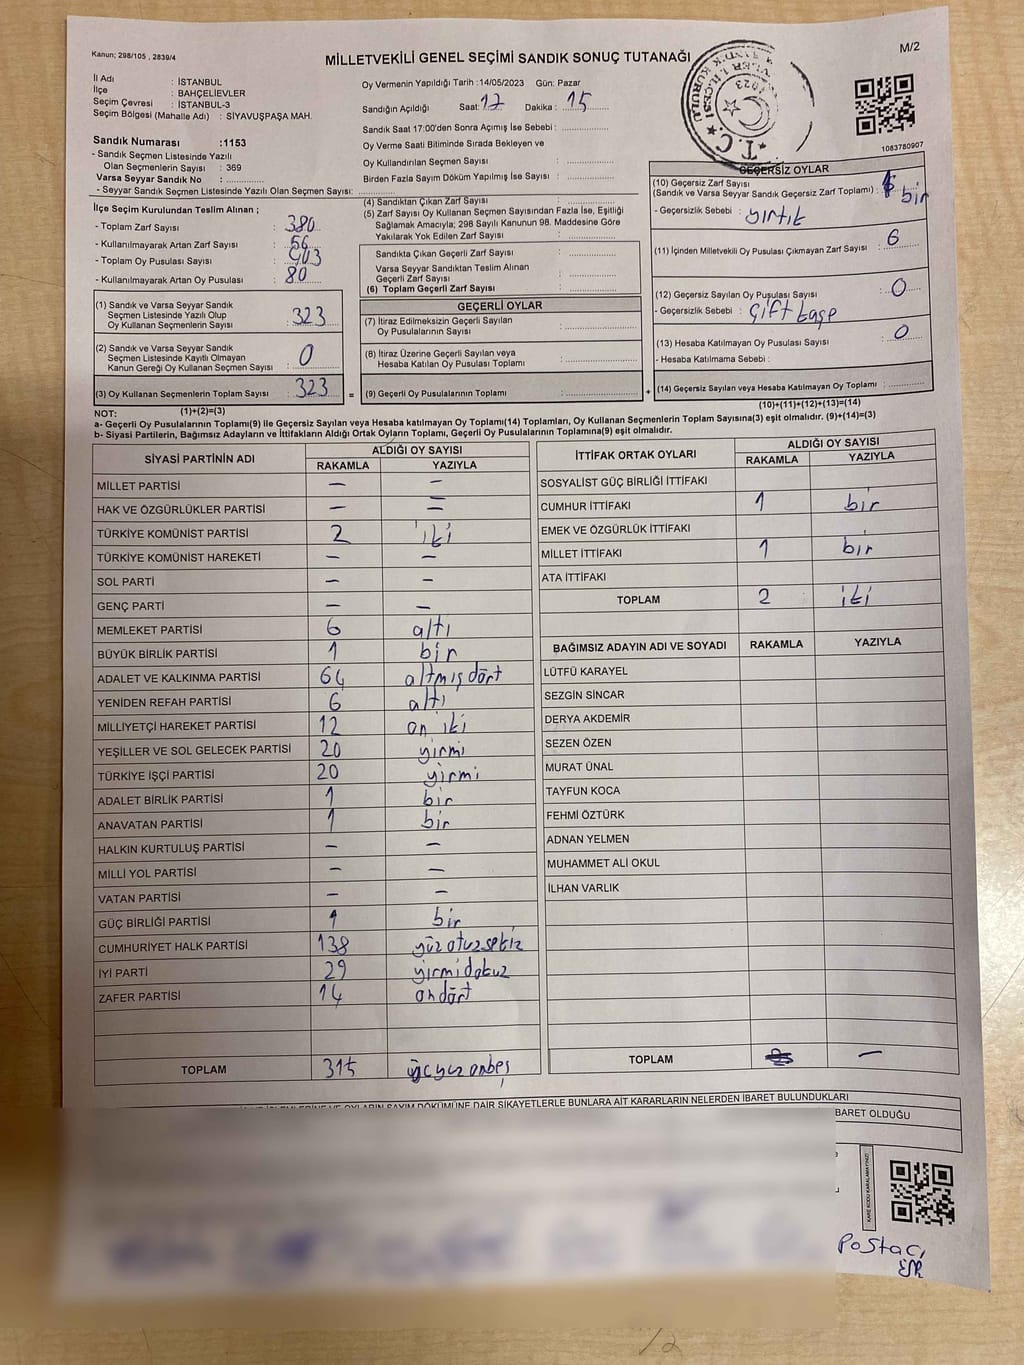 Kanun; 298/105 , 2839/4
MİLLETVEKİLİ GENEL SEÇİMİ SANDIK SONUÇ TUTANAĞI
M/2
İl Adı : İSTANBUL
İlçe : BAHÇELİEVLER
Seçim Çevresi : İSTANBUL-3
Seçim Bölgesi (Mahalle Adı) : SİYAVUŞPAŞA MAH.
Sandık Numarası :1153
- Sandık Seçmen Listesinde Yazılı
Olan Seçmenlerin Sayısı : 369
Varsa Seyyar Sandık No :
- Seyyar Sandık Seçmen Listesinde Yazılı Olan Seçmen Sayısı:
Oy Vermenin Yapıldığı Tarih :14/05/2023 Gün: Pazar
Sandığın Açıldığı Saat: 17 Dakika : 15
Sandık Saat 17:00'den Sonra Açımış İse Sebebi :
Oy Verme Saati Bitiminde Sırada Bekleyen ve
Oy Kullandırılan Seçmen Sayısı :
Birden Fazla Sayım Döküm Yapılmış İse Sayısı :
T.C.
1083780907
İlçe Seçim Kurulundan Teslim Alınan ;
- Toplam Zarf Sayısı : 380
- Kullanılmayarak Artan Zarf Sayısı : 56
- Toplam Oy Pusulası Sayısı : 403
- Kullanılmayarak Artan Oy Pusulası : 80
(1) Sandık ve Varsa Seyyar Sandık
Seçmen Listesinde Yazılı Olup
Oy Kullanan Seçmenlerin Sayısı : 323
(2) Sandık ve Varsa Seyyar Sandık
Seçmen Listesinde Kayıtlı Olmayan
Kanun Gereği Oy Kullanan Seçmen Sayısı : 0
(3) Oy Kullanan Seçmenlerin Toplam Sayısı : 323
(4) Sandıktan Çıkan Zarf Sayısı :
(5) Zarf Sayısı Oy Kullanan Seçmen Sayısından Fazla İse, Eşitliği
Sağlamak Amacıyla; 298 Sayılı Kanunun 98. Maddesine Göre
Yakılarak Yok Edilen Zarf Sayısı :
Sandıkta Çıkan Geçerli Zarf Sayısı :
Varsa Seyyar Sandıktan Teslim Alınan
Geçerli Zarf Sayısı :
(6) Toplam Geçerli Zarf Sayısı :
GEÇERLİ OYLAR
(7) İtiraz Edilmeksizin Geçerli Sayılan
Oy Pusulalarının Sayısı :
(8) İtiraz Üzerine Geçerli Sayılan veya
Hesaba Katılan Oy Pusulası Toplamı :
= (9) Geçerli Oy Pusulalarının Toplamı :
GEÇERSİZ OYLAR
(10) Geçersiz Zarf Sayısı
(Sandık ve Varsa Seyyar Sandık Geçersiz Zarf Toplamı) : bir
- Geçersizlik Sebebi : yırtık
(11) İçinden Milletvekili Oy Pusulası Çıkmayan Zarf Sayısı : 6
(12) Geçersiz Sayılan Oy Pusulası Sayısı : 0
- Geçersizlik Sebebi : çift kaşe
(13) Hesaba Katılmayan Oy Pusulası Sayısı : 0
- Hesaba Katılmama Sebebi :
+ (14) Geçersiz Sayılan veya Hesaba Katılmayan Oy Toplamı :
NOT: (1)+(2)=(3)
(10)+(11)+(12)+(13)=(14)
a- Geçerli Oy Pusulalarının Toplamı(9) ile Geçersiz Sayılan veya Hesaba katılmayan Oy Toplamı(14) Toplamları, Oy Kullanan Seçmenlerin Toplam Sayısına(3) eşit olmalıdır. (9)+(14)=(3)
b- Siyasi Partilerin, Bağımsız Adayların ve İttifakların Aldığı Ortak Oyların Toplamı, Geçerli Oy Pusulalarının Toplamına(9) eşit olmalıdır.
SİYASİ PARTİNİN ADI ALDIĞI OY SAYISI
RAKAMLA YAZIYLA
MİLLET PARTİSİ — —
HAK VE ÖZGÜRLÜKLER PARTİSİ — —
TÜRKİYE KOMÜNİST PARTİSİ 2 iki
TÜRKİYE KOMÜNİST HAREKETİ — —
SOL PARTİ — —
GENÇ PARTİ — —
MEMLEKET PARTİSİ 6 altı
BÜYÜK BİRLİK PARTİSİ 1 bir
ADALET VE KALKINMA PARTİSİ 64 altmış dört
YENİDEN REFAH PARTİSİ 6 altı
MİLLİYETÇİ HAREKET PARTİSİ 12 on iki
YEŞİLLER VE SOL GELECEK PARTİSİ 20 yirmi
TÜRKİYE İŞÇİ PARTİSİ 20 yirmi
ADALET BİRLİK PARTİSİ 1 bir
ANAVATAN PARTİSİ 1 bir
HALKIN KURTULUŞ PARTİSİ — —
MİLLİ YOL PARTİSİ — —
VATAN PARTİSİ — —
GÜÇ BİRLİĞİ PARTİSİ 1 bir
CUMHURİYET HALK PARTİSİ 138 yüz otuz sekiz
İYİ PARTİ 29 yirmi dokuz
ZAFER PARTİSİ 14 on dört
TOPLAM 315 üçyüz onbeş
İTTİFAK ORTAK OYLARI ALDIĞI OY SAYISI
RAKAMLA YAZIYLA
SOSYALİST GÜÇ BİRLİĞİ İTTİFAKI
CUMHUR İTTİFAKI 1 bir
EMEK VE ÖZGÜRLÜK İTTİFAKI
MİLLET İTTİFAKI 1 bir
ATA İTTİFAKI
TOPLAM 2 iki
BAĞIMSIZ ADAYIN ADI VE SOYADI RAKAMLA YAZIYLA
LÜTFÜ KARAYEL
SEZGİN SİNCAR
DERYA AKDEMİR
SEZEN ÖZEN
MURAT ÜNAL
TAYFUN KOCA
FEHMİ ÖZTÜRK
ADNAN YELMEN
MUHAMMET ALİ OKUL
İLHAN VARLIK
TOPLAM —
SAYIM DÖKÜMÜNE DAİR ŞİKAYETLERLE BUNLARA AİT KARARLARIN NELERDEN İBARET BULUNDUKLARI
BARET OLDUĞU
KARE KODU KARALAMAYINIZ!
Postacı